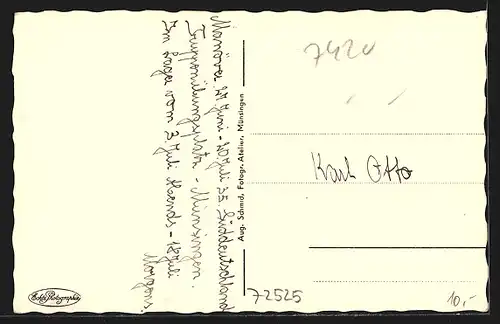 Manöver 27 Juni - 20 Juli 35. Süddeutschland
Truppenübungsplatz, Münsingen.
Im Lager vom 3 Juli Abends - 18 Juli
Morgens.
Aug. Schmid, Fotogr. Atelier, Münsingen
7420
Karl Otto
72525
10,-
Echte Photographie